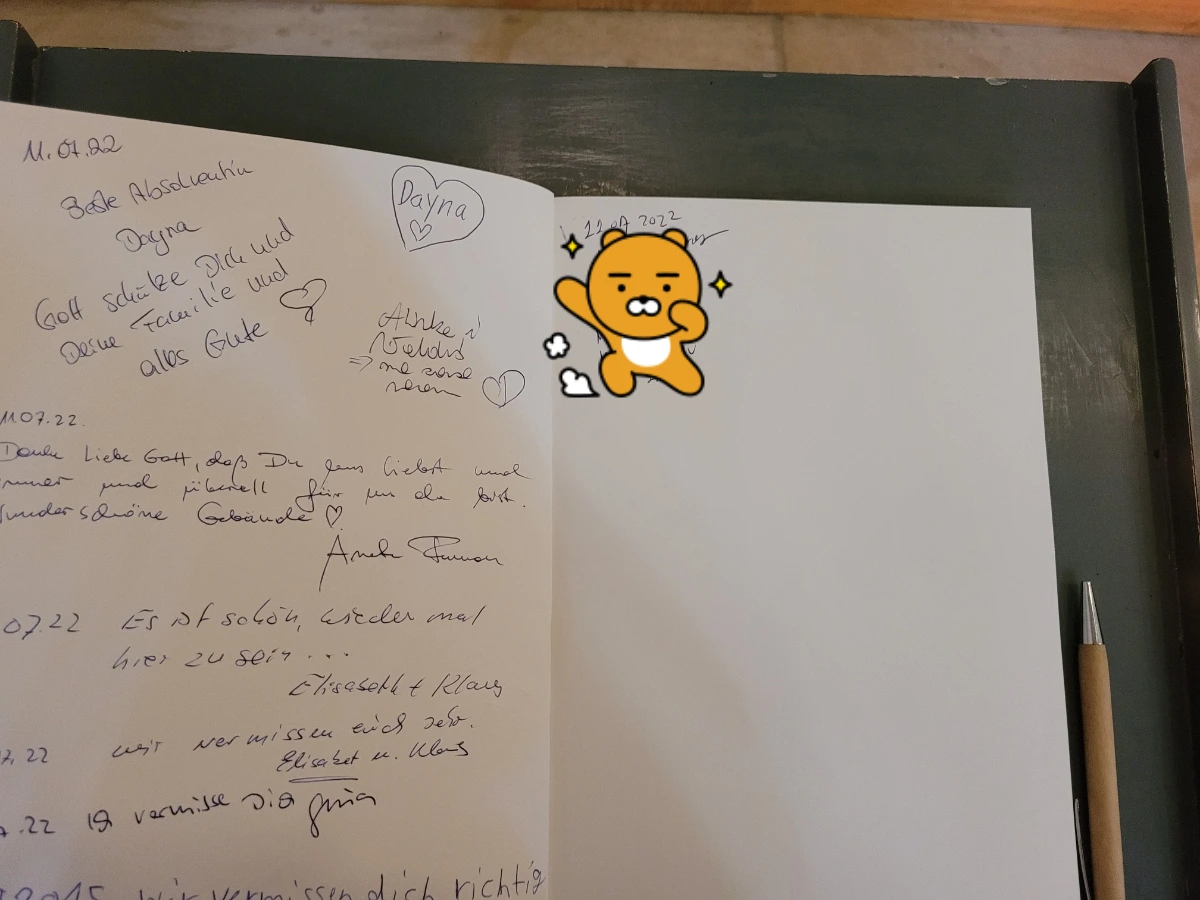 11.07.22
Beste Absolventin
Dayna
Gott schütze Dich und
Deine Familie und
alles Gute
Dayna
11.07.22.
Danke Liebe Gott, daß Du uns liebst und
immer und überall für un da bist.
Wunderschöne Gebäude
07.22 Es ist schön, wieder mal
hier zu sein ...
Elisabeth + Klaus
7.22 wir vermissen euch sehr.
Elisabet u. Klaus
.22 Ich vermisse Dich
2015 wir vermissen dich richtig
11 07 2022